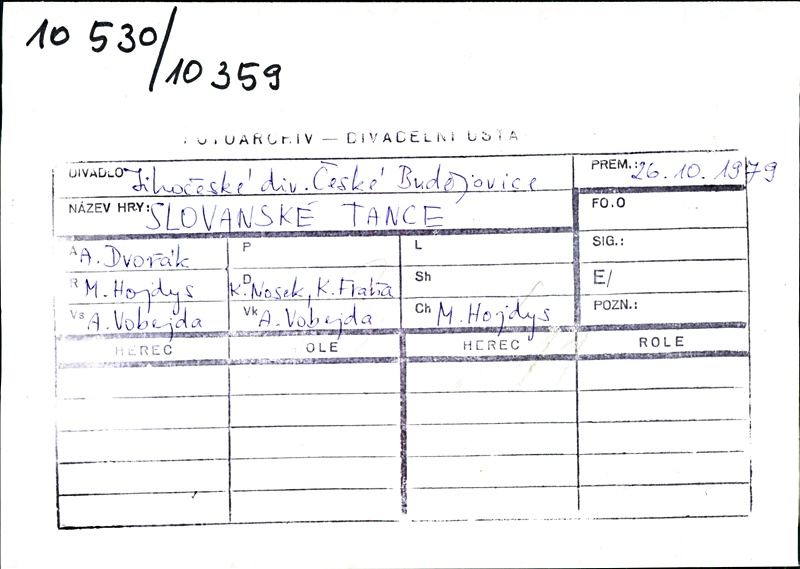 10 530/
10 359
FOTOARCHIV — DIVADELNÍ ÚSTA
DIVADLO Jihočeské div. České Budějovice
PREM.: 26.10.1979
NÁZEV HRY: SLOVANSKÉ TANCE
FO.O
A A. Dvořák
P
L
SIG.:
R M. Hojdys
D K. Nosek, K. Fratia
Sh
E/
Vs A. Vobejda
Vk A. Vobejda
Ch M. Hojdys
POZN.:
HEREC
OLE
HEREC
ROLE